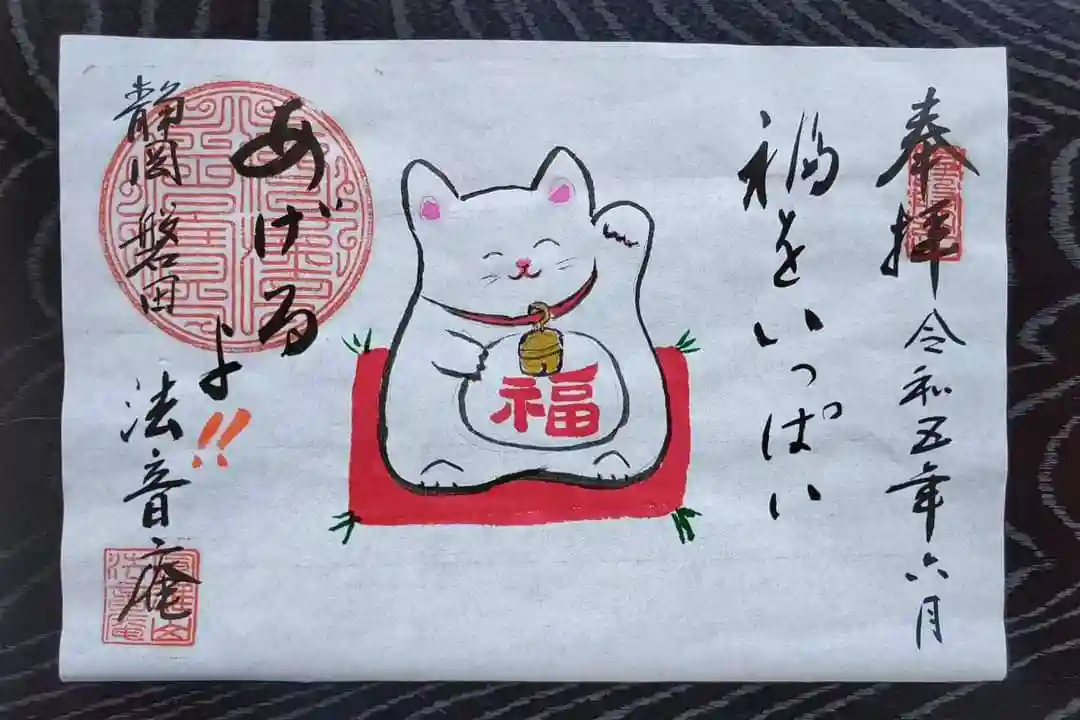 奉拝
令和五年六月
福をいっぱい
福
あげるよ!!
静岡 磐田
法音庵